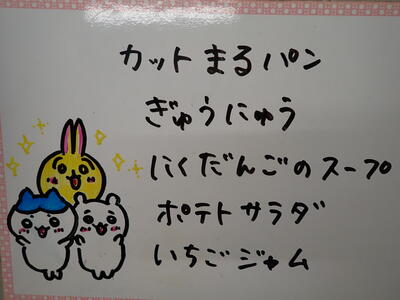 カットまるパン
ぎゅうにゅう
にくだんごのスープ
ポテトサラダ
いちごジャム